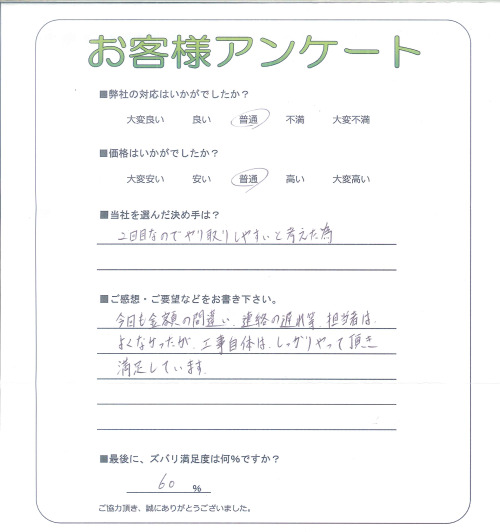 お客様アンケート
■弊社の対応はいかがでしたか？
大変良い 良い 普通 不満 大変不満
■価格はいかがでしたか？
大変安い 安い 普通 高い 大変高い
■当社を選んだ決め手は？
2回目なのでやり取りしやすいと考えた為
■ご感想・ご要望などをお書き下さい。
今回も金額の間違い、連絡の遅れ等、担当者は、
よくなかったが、工事自体は、しっかりやって頂き
満足しています。
■最後に、ズバリ満足度は何％ですか？
60 ％
ご協力頂き、誠にありがとうございました。